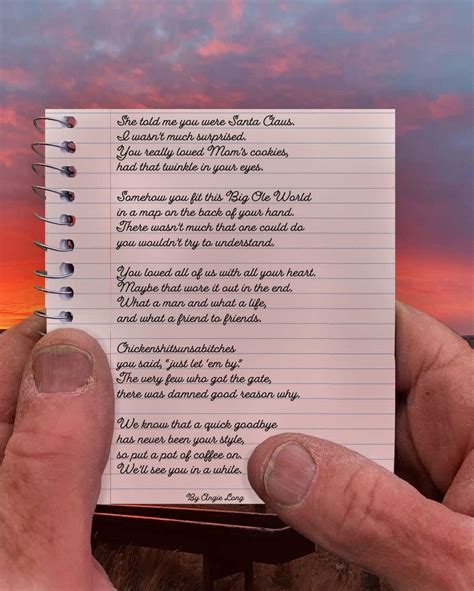 She told me you were Santa Claus.
I wasn't much surprised.
You really loved Mom's cookies,
had that twinkle in your eyes.
Somehow you fit this Big Ole World
in a map on the back of your hand.
There wasn't much that one could do
you wouldn't try to understand.
You loved all of us with all your heart.
Maybe that wore it out in the end.
What a man and what a life,
and what a friend to friends.
Chickenshitsunsabitches
you said, "just let 'em by."
The very few who got the gate,
there was damned good reason why.
We know that a quick goodbye
has never been your style,
so put a pot of coffee on.
We'll see you in a while.
By Angie Long